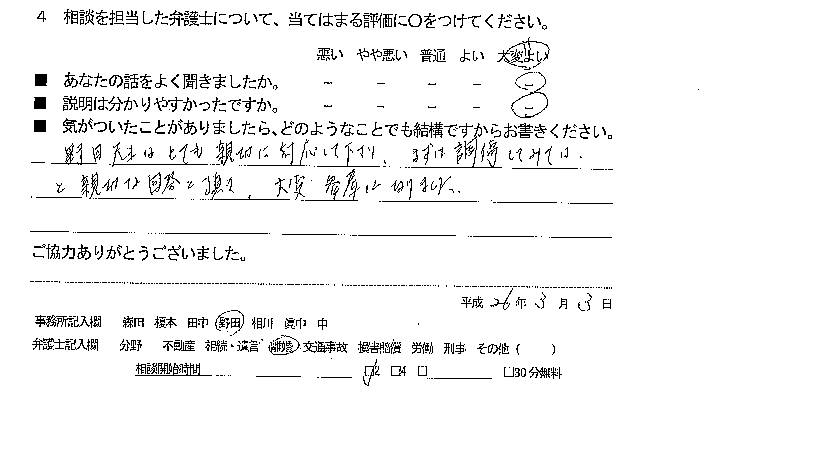 4 相談を担当した弁護士について、当てはまる評価に〇をつけてください。
悪い やや悪い 普通 よい 大変よい
■ あなたの話をよく聞きましたか。 － － － － －
■ 説明は分かりやすかったですか。 － － － － －
■ 気がついたことがありましたら、どのようなことでも結構ですからお書きください。
野田先生はとても親切に対応して下さり、まずは調停してみては、
と親切な回答を頂き、大変参考になりました。
ご協力ありがとうございました。
平成 26 年 3 月 3 日
事務所記入欄 森田 榎本 田中 野田 相川 眞中 中
弁護士記入欄 分野 不動産 相続・遺言 離婚 交通事故 損害賠償 労働 刑事 その他 ( )
相談開始時間 □2 □4 □ □30分無料